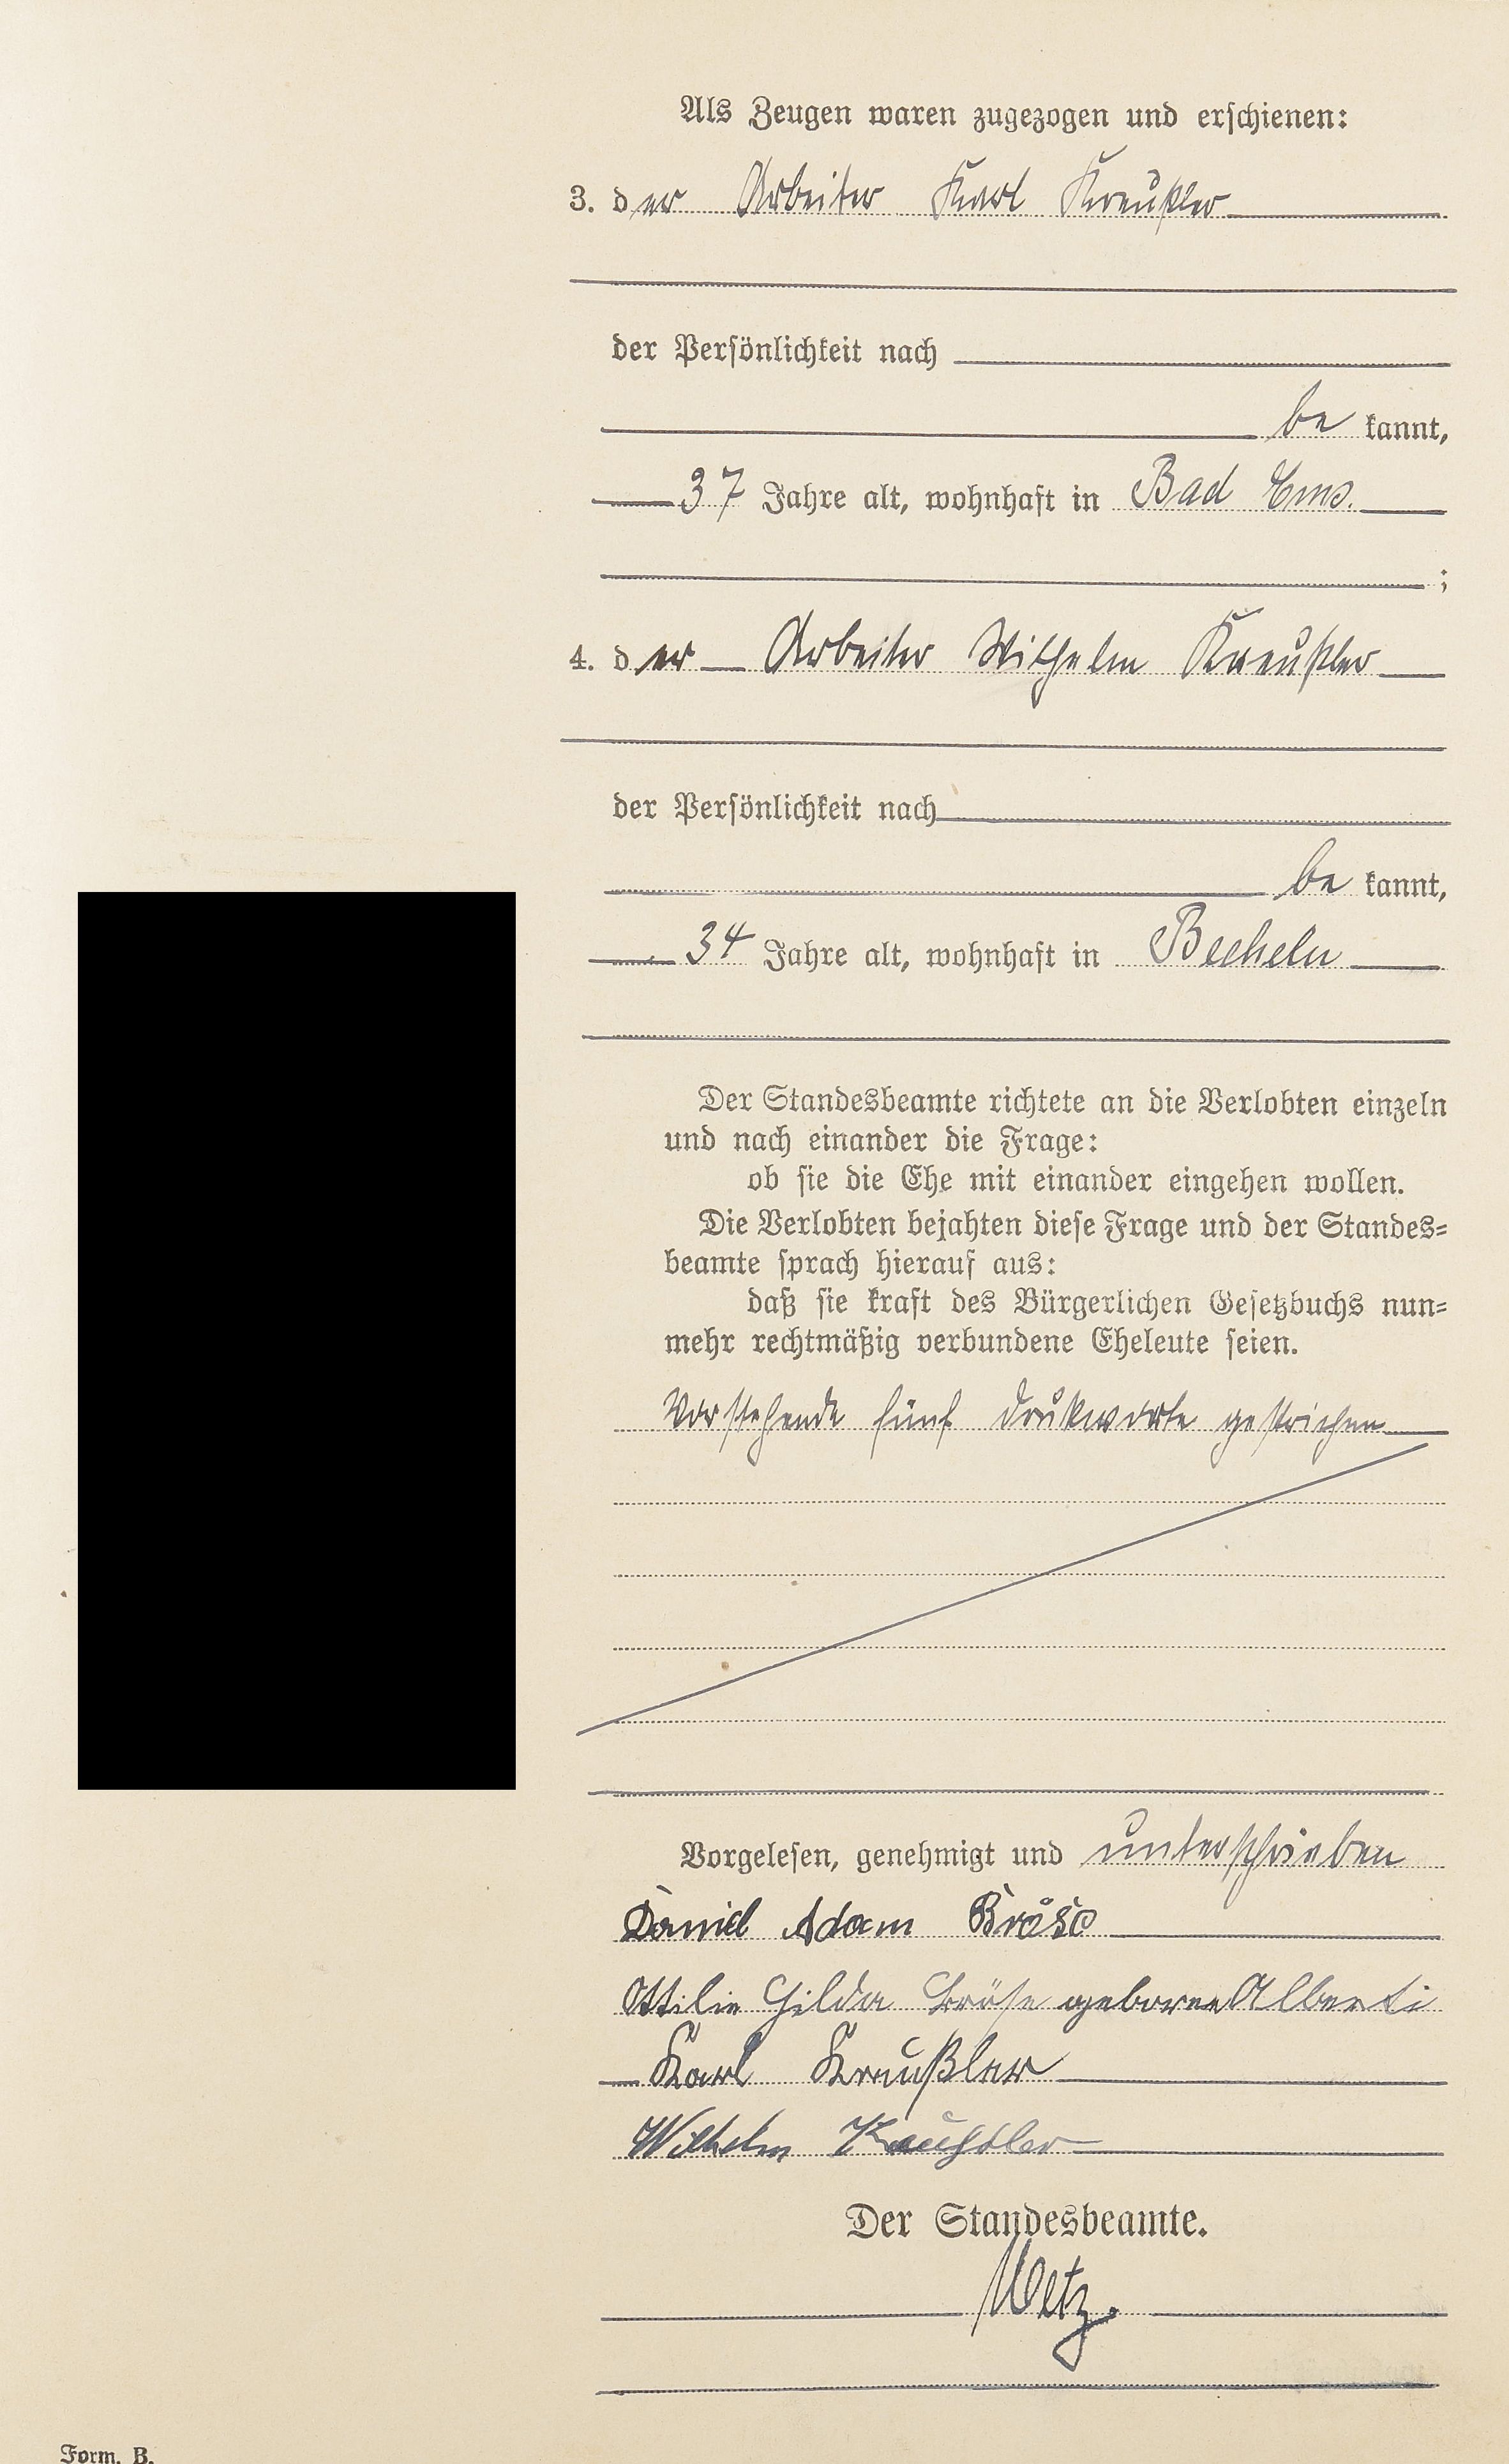 Als Zeugen waren zugezogen und erschienen:
3. der Arbeiter Karl Kreußler
der Persönlichkeit nach
be kannt,
37 Jahre alt, wohnhaft in Bad Ems.
;
4. der Arbeiter Wilhelm Kreußler
der Persönlichkeit nach
be kannt,
34 Jahre alt, wohnhaft in Becheln
Der Standesbeamte richtete an die Verlobten einzeln
und nach einander die Frage:
ob sie die Ehe mit einander eingehen wollen.
Die Verlobten bejahten diese Frage und der Standes=
beamte sprach hierauf aus:
daß sie kraft des Bürgerlichen Gesetzbuchs nun=
mehr rechtmäßig verbundene Eheleute seien.
Vorstehende fünf Druckworte gestrichen
Vorgelesen, genehmigt und unterschrieben
Daniel Adam Bröse
Ottilie Hilda Bröse geborene Alberti
Karl Kreußler
Wilhelm Kreußler
Der Standesbeamte.
Metz.
Form. B.